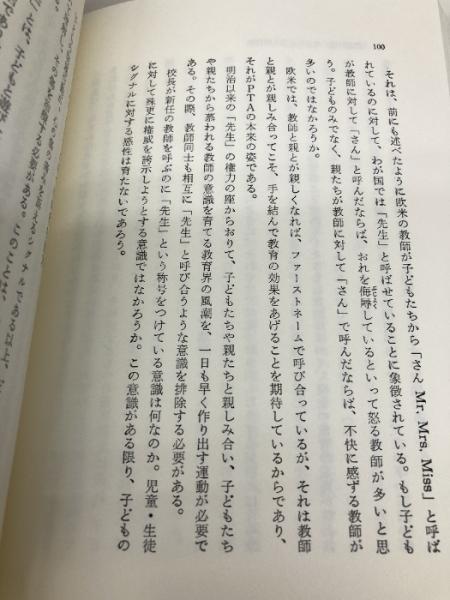 100
それは、前にも述べたように欧米の教師が子どもたちから「さん Mr. Mrs. Miss」と呼ば
れているのに対して、わが国では「先生」と呼ばせていることに象徴されている。もし子ども
が教師に対して「さん」と呼んだならば、おれを侮辱しているといって怒る教師が多いと思
う。子どものみでなく、親たちが教師に対して「さん」で呼んだならば、不快に感ずる教師が
多いのではなかろうか。
欧米では、教師と親とが親しくなれば、ファーストネームで呼び合っているが、それは教師
と親とが親しみ合ってこそ、手を結んで教育の効果をあげることを期待しているからであり、
それがPTAの本来の姿である。
明治以来の「先生」の権力の座からおりて、子どもたちや親たちと親しみ合い、子どもたち
や親たちから慕われる教師の意識を育てる教育界の風潮を、一日も早く作り出す運動が必要で
ある。その際、教師同士も相互に「先生」と呼び合うような意識を排除する必要がある。
校長が新任の教師を呼ぶのに「先生」という称号をつけている意識は何なのか。児童・生徒
に対して殊更に権威を誇示しようとする意識ではなかろうか。この意識がある限り、子どもの
シグナルに対する感性は育たないであろう。